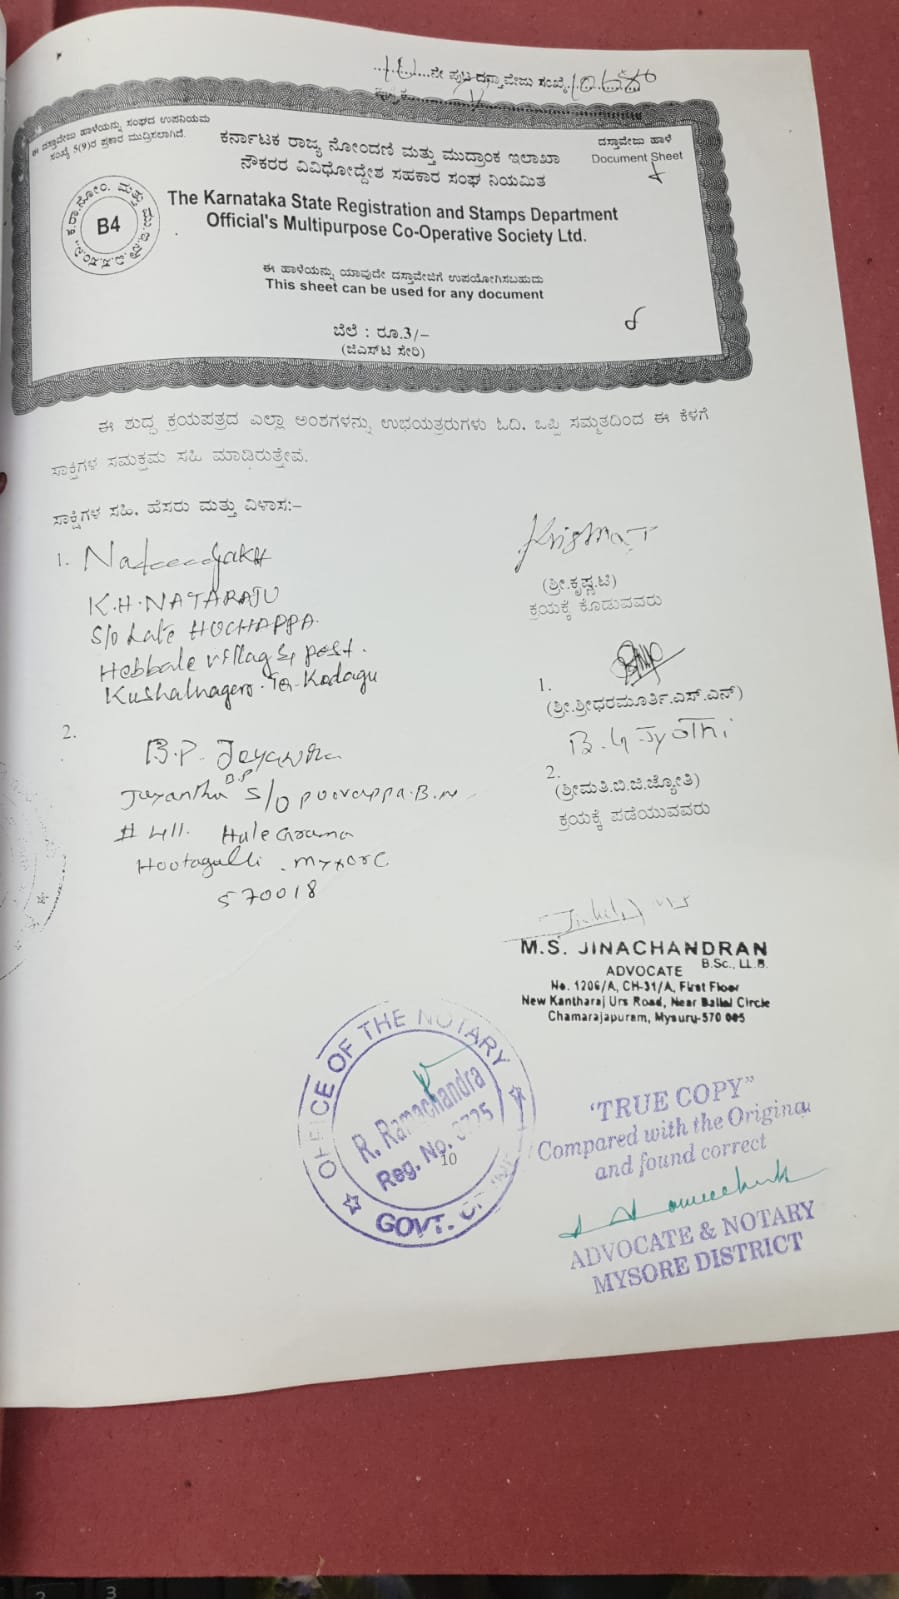 ...10...ನೇ ಪುಟ ದಸ್ತಾವೇಜು ಸಂಖ್ಯೆ
ಈ ದಸ್ತಾವೇಜು ಹಾಳೆಯನ್ನು ಸಂಘದ ಉಪನಿಯಮ
ಸಂಖ್ಯೆ 5(9)ರ ಪ್ರಕಾರ ಮುದ್ರಿಸಲಾಗಿದೆ.
ಕರ್ನಾಟಕ ರಾಜ್ಯ ನೋಂದಣಿ ಮತ್ತು ಮುದ್ರಾಂಕ ಇಲಾಖಾ
ನೌಕರರ ವಿವಿಧೋದ್ದೇಶ ಸಹಕಾರ ಸಂಘ ನಿಯಮಿತ
ದಸ್ತಾವೇಜು ಹಾಳೆ
Document Sheet
B4
The Karnataka State Registration and Stamps Department
Official's Multipurpose Co-Operative Society Ltd.
ಈ ಹಾಳೆಯನ್ನು ಯಾವುದೇ ದಸ್ತಾವೇಜಿಗೆ ಉಪಯೋಗಿಸಬಹುದು
This sheet can be used for any document
ಬೆಲೆ : ರೂ.3/-
(ಜಿಎಸ್‌ಟಿ ಸೇರಿ)
ಈ ಶುದ್ಧ ಕ್ರಯಪತ್ರದ ಎಲ್ಲಾ ಅಂಶಗಳನ್ನು ಉಭಯತ್ರರುಗಳು ಓದಿ, ಒಪ್ಪಿ ಸಮ್ಮತದಿಂದ ಈ ಕೆಳಗೆ
ಸಾಕ್ಷಿಗಳ ಸಮಕ್ಷಮ ಸಹಿ ಮಾಡಿರುತ್ತೇವೆ.
ಸಾಕ್ಷಿಗಳ ಸಹಿ, ಹೆಸರು ಮತ್ತು ವಿಳಾಸ:-
1.
K.H. NATARAJU
S/o Late HUCHAPPA
Hebbale village & post.
Kushalnagar Tq. Kodagu
2.
B.P. Jayantha
B.P
Jayantha S/o
# 411.
Hootagalli . Mysore
570018
Krishna T
(ಶ್ರೀ.ಕೃಷ್ಣ.ಟಿ)
ಕ್ರಯಕ್ಕೆ ಕೊಡುವವರು
1.
(ಶ್ರೀ.ಶ್ರೀಧರಮೂರ್ತಿ.ಎಸ್.ಎನ್)
B. G Jyothi
2.
(ಶ್ರೀಮತಿ.ಬಿ.ಜಿ.ಜ್ಯೋತಿ)
ಕ್ರಯಕ್ಕೆ ಪಡೆಯುವವರು
M.S. JINACHANDRAN
B.Sc., LL.B.
ADVOCATE
No. 1206/A, CH-31/A, First Floor
New Kantharaj Urs Road, Near Ballal Circle
Chamarajapuram, Mysuru-570 005
OFFICE OF THE NOTARY
R. Ramachandra
Reg. No.
GOVT. OF
10
'TRUE COPY"
Compared with the Original
and found correct
ADVOCATE & NOTARY
MYSORE DISTRICT